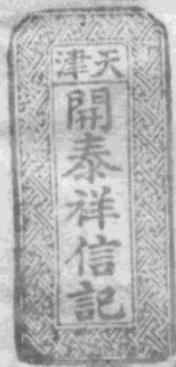 天津
開泰祥信記